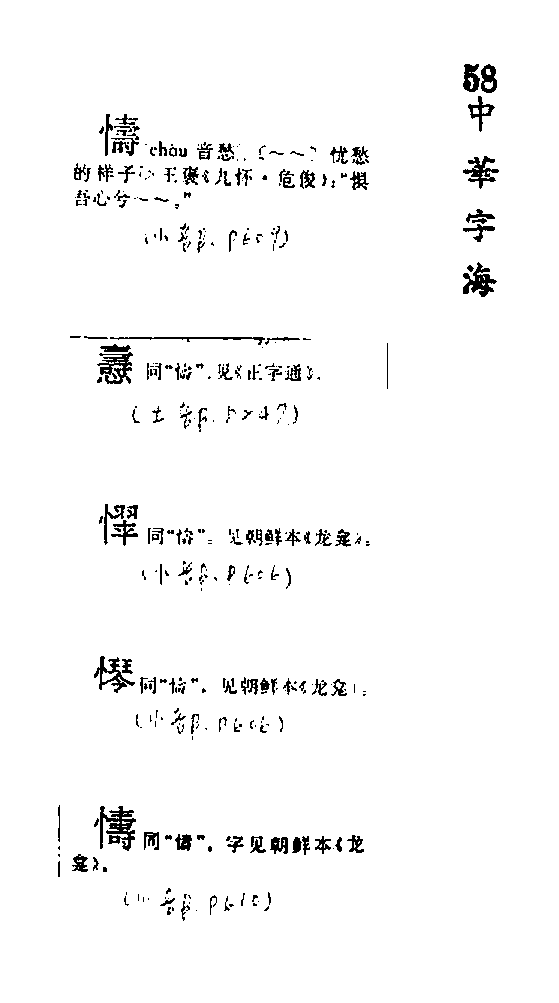 58
中華字海
懤 chóu 音愁.〔～～〕忧愁
的样子▷王褒《九怀·危俊》:“惧
吾心兮～～。”
(小部, P609)
同“懤”.见《正字通》.
(士部, P247)
同“懤”。见朝鲜本《龙龛》。
(小部, P606)
同“懤”。见朝鲜本《龙龛》。
(小部, P606)
同“懤”。字见朝鲜本《龙
龛》。
(小部, P610)